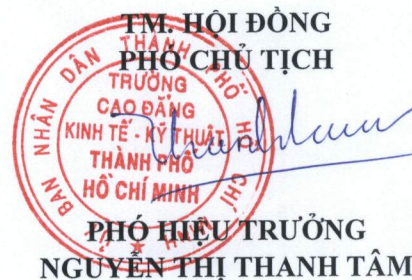 TM. HỘI ĐỒNG
PHÓ CHỦ TỊCH
BAN NHÂN DÂN THÀNH PHỐ HỒ CHÍ MINH
TRƯỜNG
CAO ĐẲNG
KINH TẾ - KỸ THUẬT
THÀNH PHỐ
HỒ CHÍ MINH
PHÓ HIỆU TRƯỞNG
NGUYỄN THỊ THANH TÂM